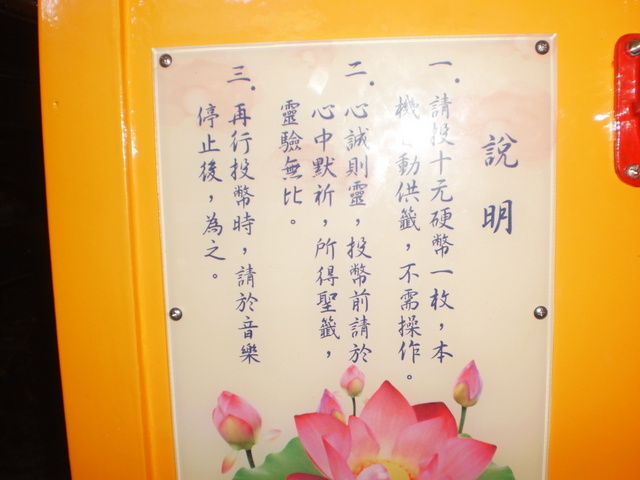 說明
一.請投十元硬幣一枚，本
機動供籤，不需操作。
二.心誠則靈，投幣前請於
心中默祈，所得聖籤，
靈驗無比。
三.再行投幣時，請於音樂
停止後，為之。